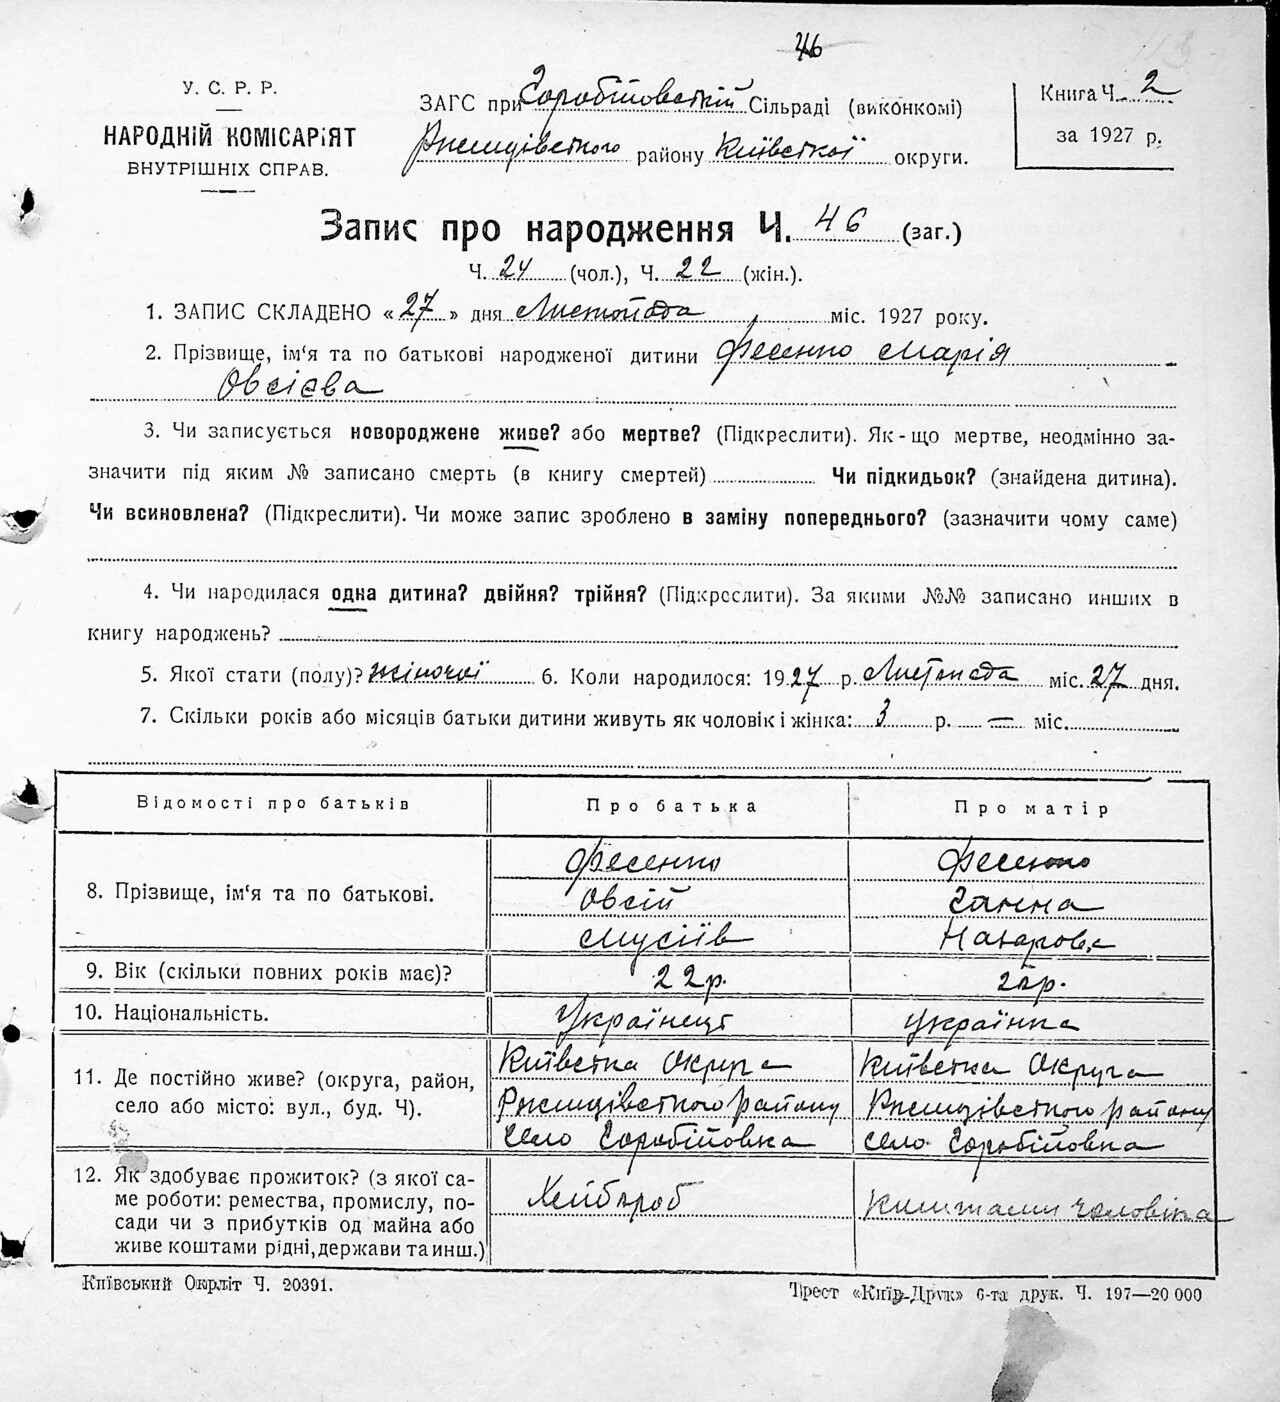 46
У. С. Р. Р.
НАРОДНІЙ КОМІСАРІЯТ
ВНУТРІШНІХ СПРАВ.
ЗАГС при Горобіївській Сільраді (виконкомі)
Ржищівського району Київської округи.
Книга Ч. 2
за 1927 р.
Запис про народження Ч. 46 (заг.)
Ч. 24 (чол.), Ч. 22 (жін.).
1. ЗАПИС СКЛАДЕНО «27» дня Листопада міс. 1927 року.
2. Прізвище, ім‘я та по батькові народженої дитини Фесенко Марія
Овсієва
3. Чи записується новороджене живе? або мертве? (Підкреслити). Як-що мертве, неодмінно за-
значити під яким № записано смерть (в книгу смертей) Чи підкидьок? (знайдена дитина).
Чи всиновлена? (Підкреслити). Чи може запис зроблено в заміну попереднього? (зазначити чому саме)
4. Чи народилася одна дитина? двійня? трійня? (Підкреслити). За якими №№ записано инших в
книгу народжень?
5. Якої стати (полу)? жіночої 6. Коли народилося: 1927 р. Листопада міс. 27 дня.
7. Скільки років або місяців батьки дитини живуть як чоловік і жінка: 3 р. — міс.
Відомості про батьків Про батька Про матір
8. Прізвище, ім‘я та по батькові.
Фесенко Фесенко
Овсій Ганна
Мусіїв Назарова
9. Вік (скільки повних років має)? 22р.
10. Національність. Українець українка
11. Де постійно живе? (округа, район,
село або місто: вул., буд. Ч).
Київська Округа Київська Округа
Ржищівського району Ржищівського району
село Горобіївка село Горобіївка
12. Як здобуває прожиток? (з якої са-
ме роботи: ремества, промислу, по-
сади чи з прибутків од майна або
живе коштами рідні, держави та инш.)
Хлібороб Коштами чоловіка
Київський Окрліт Ч. 20391.
Трест «Київ-Друк» 6-та друк. Ч. 197—20 000